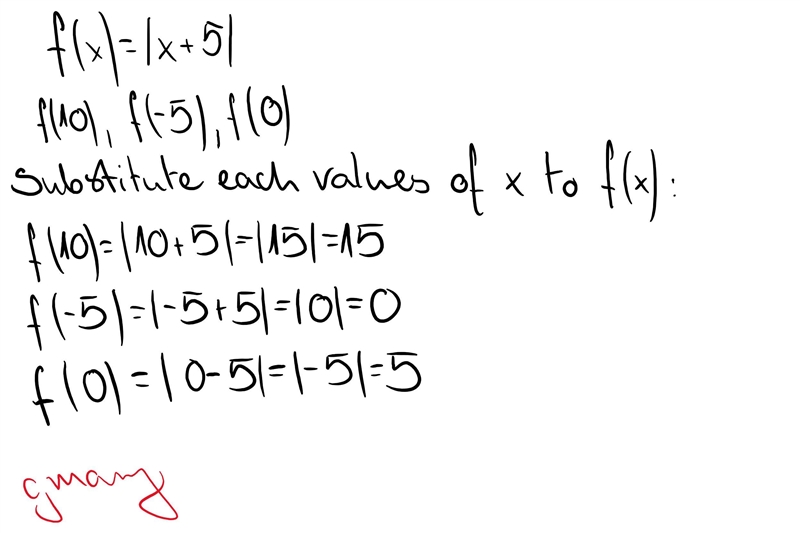 f(x)=|x+5|
f(10), f(-5), f(0)
Substitute each values of x to f(x):
f(10)=|10+5|=|15|=15
f(-5)=|-5+5|=|0|=0
f(0)=|0-5|=|-5|=5
gmany